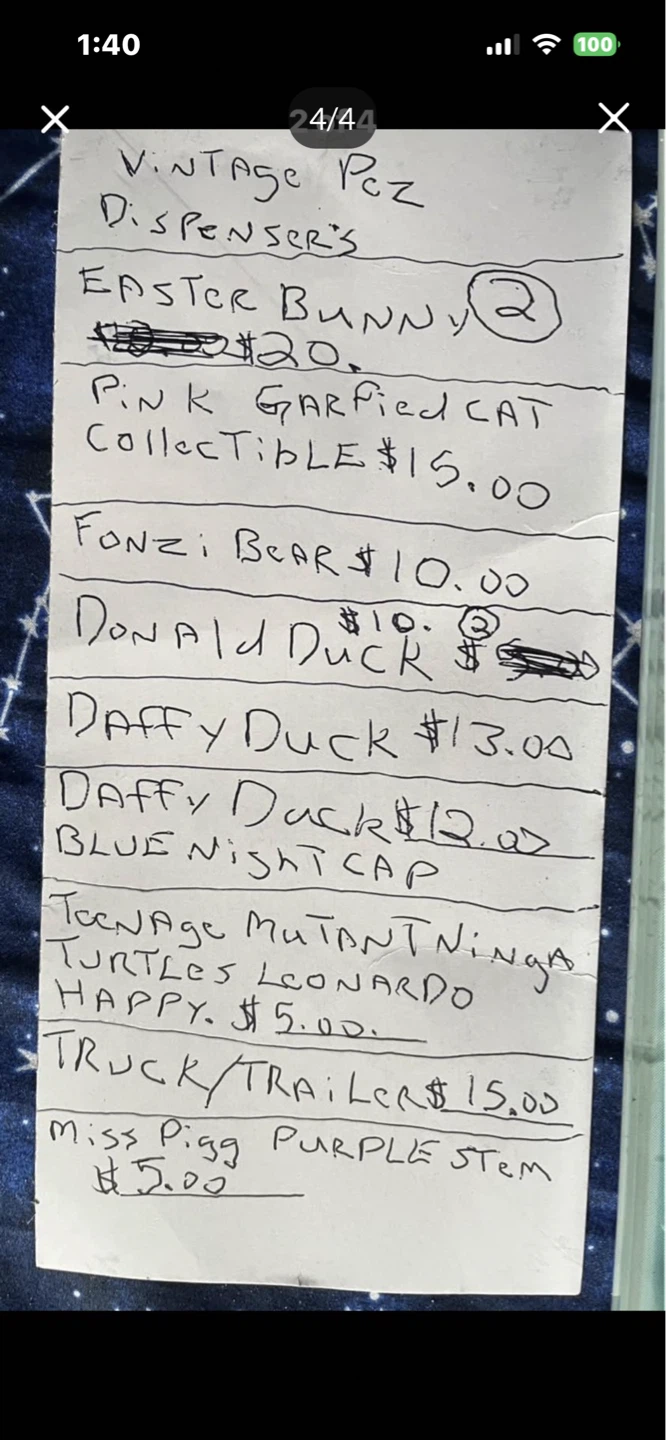 1:40
100
24/4
VINTAge Pez
DiSPENSer's
EASTER BUNNy 2
$20.
PiNK GARfied CAT
CollecTibLE $15.00
FONZi BeAR $10.00
$10. 2
DONAld DucK $
DAffy Duck $13.00
DAffy Duck $12.00
BLUE NighT CAP
TeeNAge MuTANT NiNgA
TURTLeS LeONARDO
HAPPY. $5.00.
TRUCK/TRAiLeR $15.00
Miss Pigg PURPLE STem
$5.00